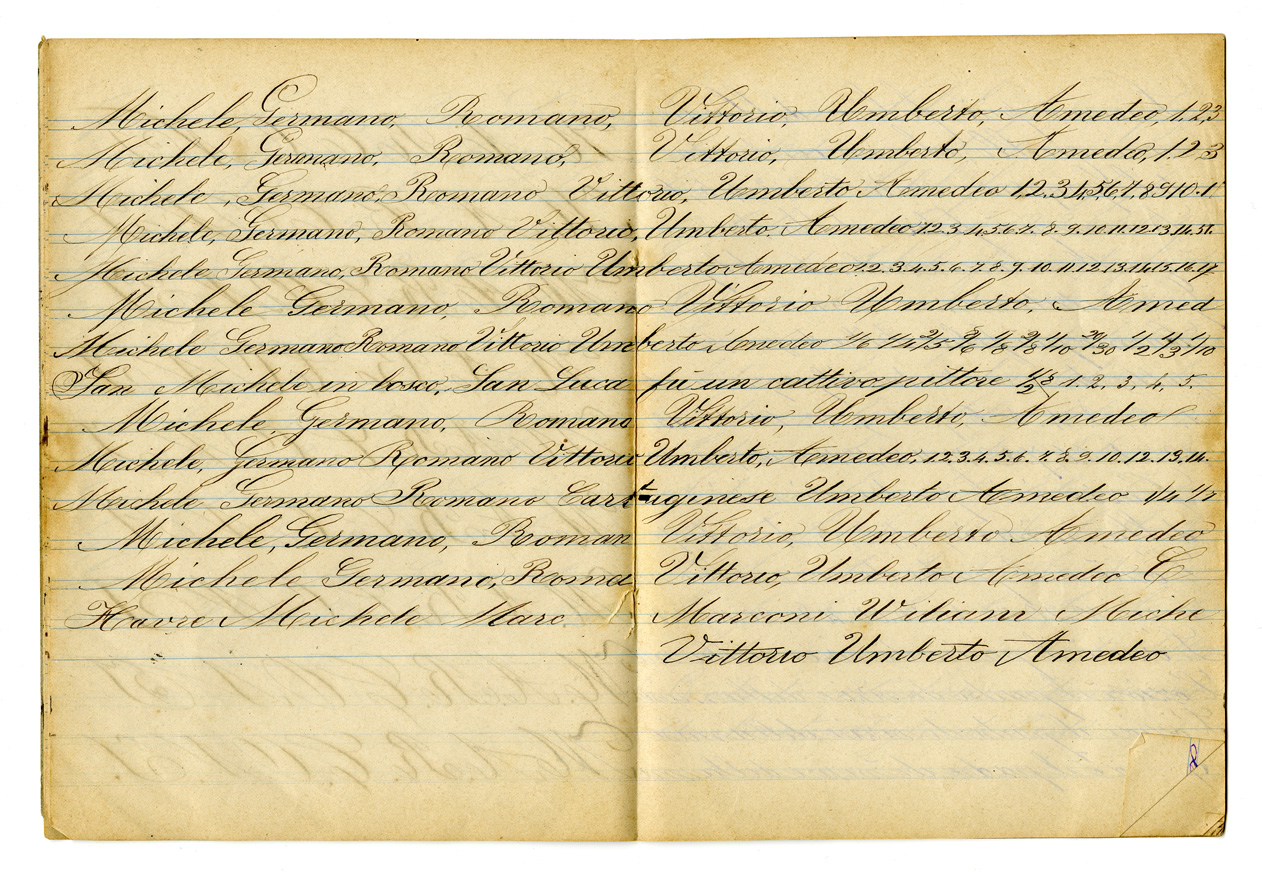 Michele, Germano, Romano, Vittorio, Umberto, Amedeo, 1.2.3
Michele, Germano, Romano, Vittorio, Umberto, Amedeo, 1.2.3
Michele, Germano, Romano Vittorio, Umberto Amedeo 1.2.3.4.5.6.7.8.9.10.1
Michele, Germano, Romano Vittorio, Umberto, Amedeo 1.2.3.4.5.6.7.8.9.10.11.12.13.14.51.
Michele Germano, Romano Vittorio Umberto Amedeo 1.2.3.4.5.6.7.8.9.10.11.12.13.14.15.16.17
Michele Germano, Romano Vittorio Umberto, Amed
Michele Germano Romano Vittorio Umberto Amedeo 1/6 1/4 2/5 8/6 1/8 9/8 1/10 20/30 1/2 4/3 1/10
San Michele in bosco, San Luca fù un cattivo pittore 1. 2. 3. 4. 5.
Michele, Germano, Romano Vittorio, Umberto, Amedeo
Michele, Germano Romano Vittorio Umberto, Amedeo, 1.2.3.4.5.6.7.8.9.10.12.13.14.
Michele Germano Romano Cartaginese Umberto Amedeo 1/4 1/7
Michele, Germano, Roman Vittorio, Umberto Amedeo
Michele Germano, Roma Vittorio, Umberto Amedeo C
Havre Michele Marc. Marconi Wiliam Miche
Vittorio Umberto Amedeo
8